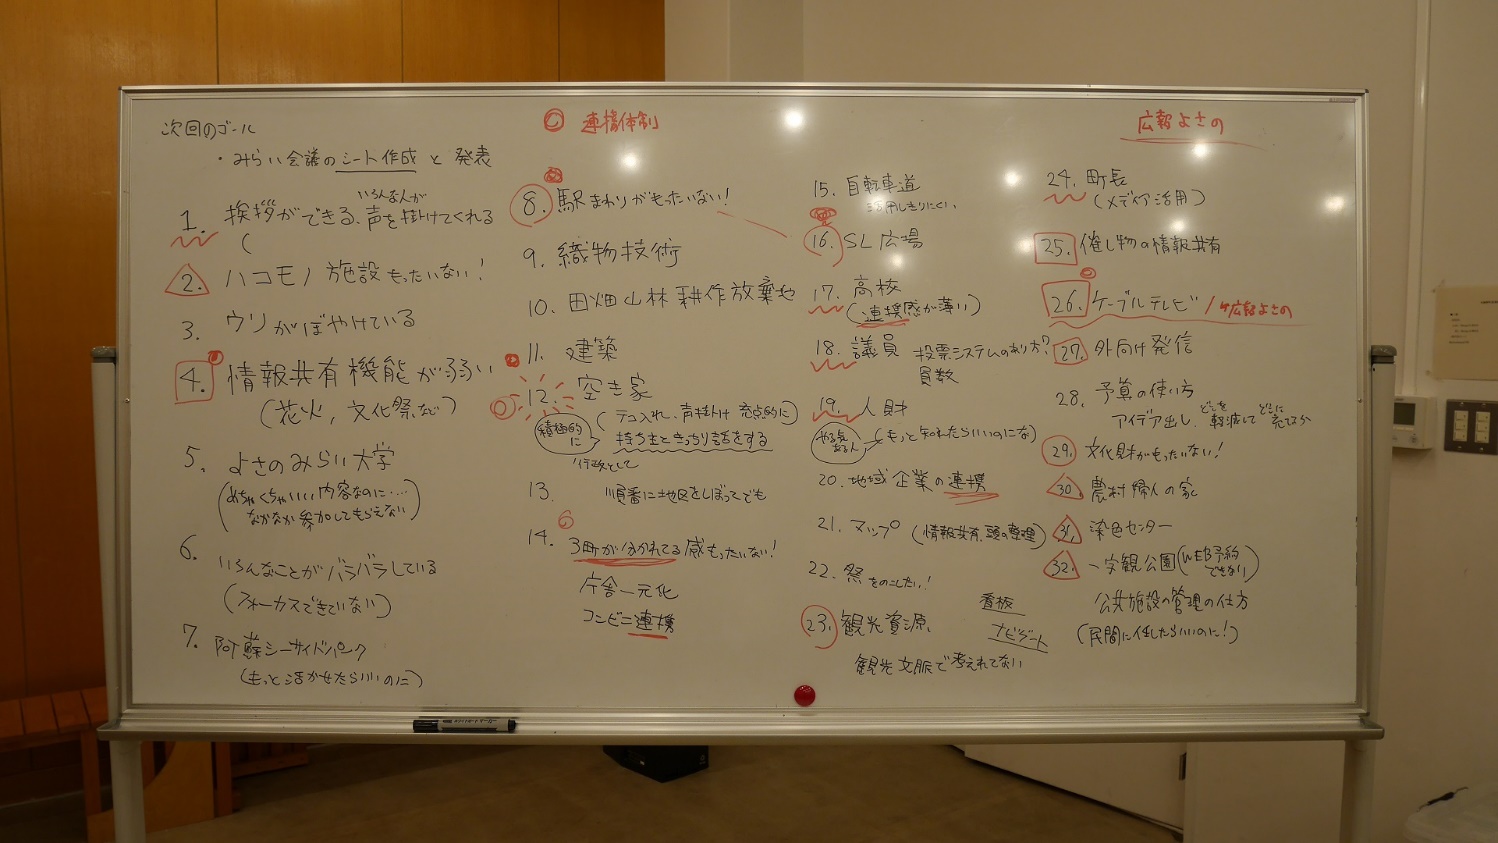 次回のゴール
・みらい会議のシート作成と発表
1. 挨拶ができる、声を掛けてくれる
いろんな人が
2. ハコモノ施設もったいない！
3. ウリがぼやけている
4. 情報共有機能が弱い
(花火，文化祭など)
5. よさのみらい大学
(めちゃくちゃいい内容なのに…
なかなか参加してもらえない)
6. いろんなことがバラバラしている
(フォーカスできていない)
7. 阿蘇シーサイドパーク
(もっと活かせたらいいのに)
◎ 連携体制
8. 駅まわりがもったいない！
9. 織物技術
10. 田畑山林耕作放棄地
11. 建築
12. 空き家
(テコ入れ、声掛け 充点的に)
積極的に
持ち主ときっちり話をする
行政として
13. 順番に地区をしぼってでも
14. 3町が分かれてる感もったいない！
庁舎一元化
コンビニ連携
15. 自転車道
活用しきりにくい
16. SL広場
17. 高校
(連携感が薄い)
18. 議員 投票システムのあり方？
員数
19. 人財
やる気ある人
(もっと知れたらいいのにな)
20. 地域企業の連携
21. マップ (情報共有、頭の整理)
22. 祭をのこしたい！
23. 観光資源、
看板
ナビゲート
観光文脈で考えれてない
広報よさの
24. 町長
(メディア活用)
25. 催し物の情報共有
26. ケーブルテレビ/広報よさの
27. 外向け発信
28. 予算の使い方
アイデア出し、どこを軽減してどこに充てるか
29. 文化財がもったいない！
30. 農村婦人の家
31. 染色センター
32. 一字観公園(WEB予約できない)
公共施設の管理の仕方
(民間に任したらいいのに！)